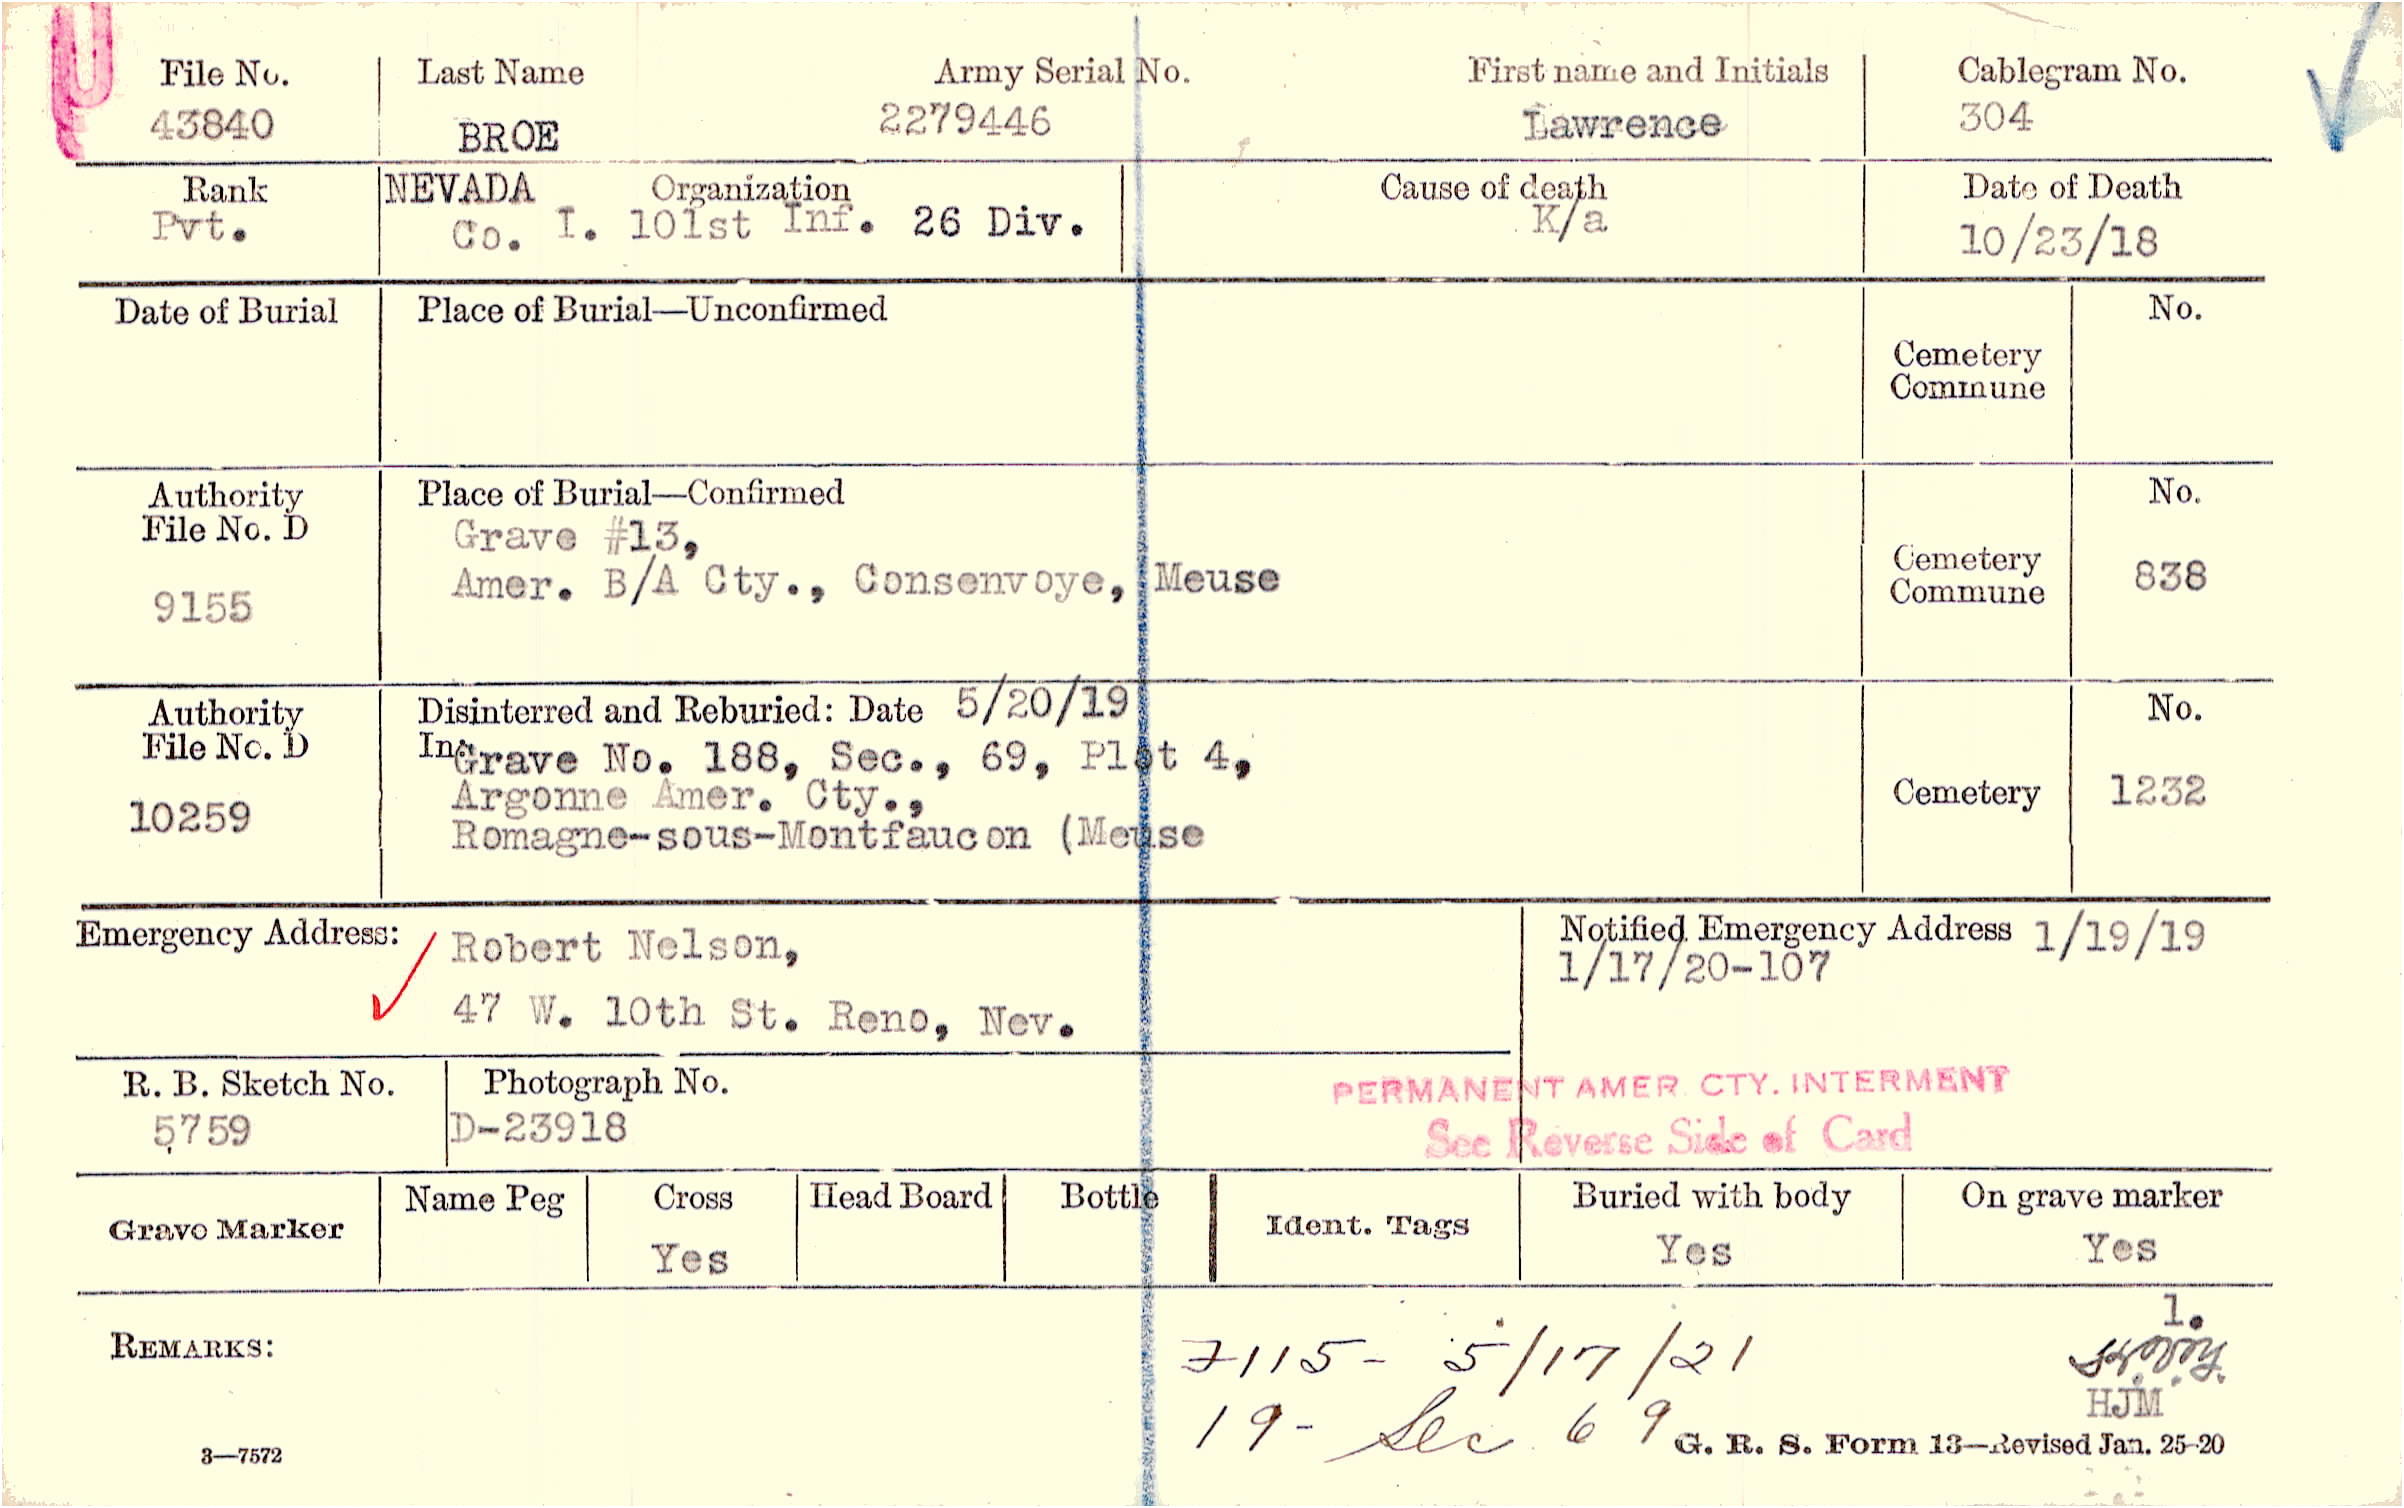 File No. Last Name Army Serial No. First name and Initials Cablegram No.
43840 BROE 2279446 Lawrence 304
Rank NEVADA Organization Cause of death Date of Death
Pvt. Co. I. 101st Inf. 26 Div. K/a 10/23/18
Date of Burial Place of Burial—Unconfirmed No.
Cemetery
Commune
Authority Place of Burial—Confirmed No.
File No. D Grave #13,
Cemetery
9155 Amer. B/A Cty., Consenvoye, Meuse Commune 838
Authority Disinterred and Reburied: Date 5/20/19 No.
File No. D In: Grave No. 188, Sec., 69, Plot 4,
10259 Argonne Amer. Cty., Cemetery 1232
Romagne-sous-Montfaucon (Meuse
Emergency Address: Robert Nelson, Notified Emergency Address 1/19/19
1/17/20-107
47 W. 10th St. Reno, Nev.
R. B. Sketch No. Photograph No. PERMANENT AMER. CTY. INTERMENT
5759 D-23918 See Reverse Side of Card
Grave Marker Name Peg Cross Head Board Bottle Ident. Tags Buried with body On grave marker
Yes Yes Yes
1.
REMARKS: 7115- 5/17/21
HJM
19- Sec 69
3—7572 G. R. S. Form 13—Revised Jan. 25-20